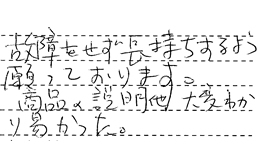 故障をせず長持ちするよう
願っております。
商品の説明他 大変わか
り易かった。